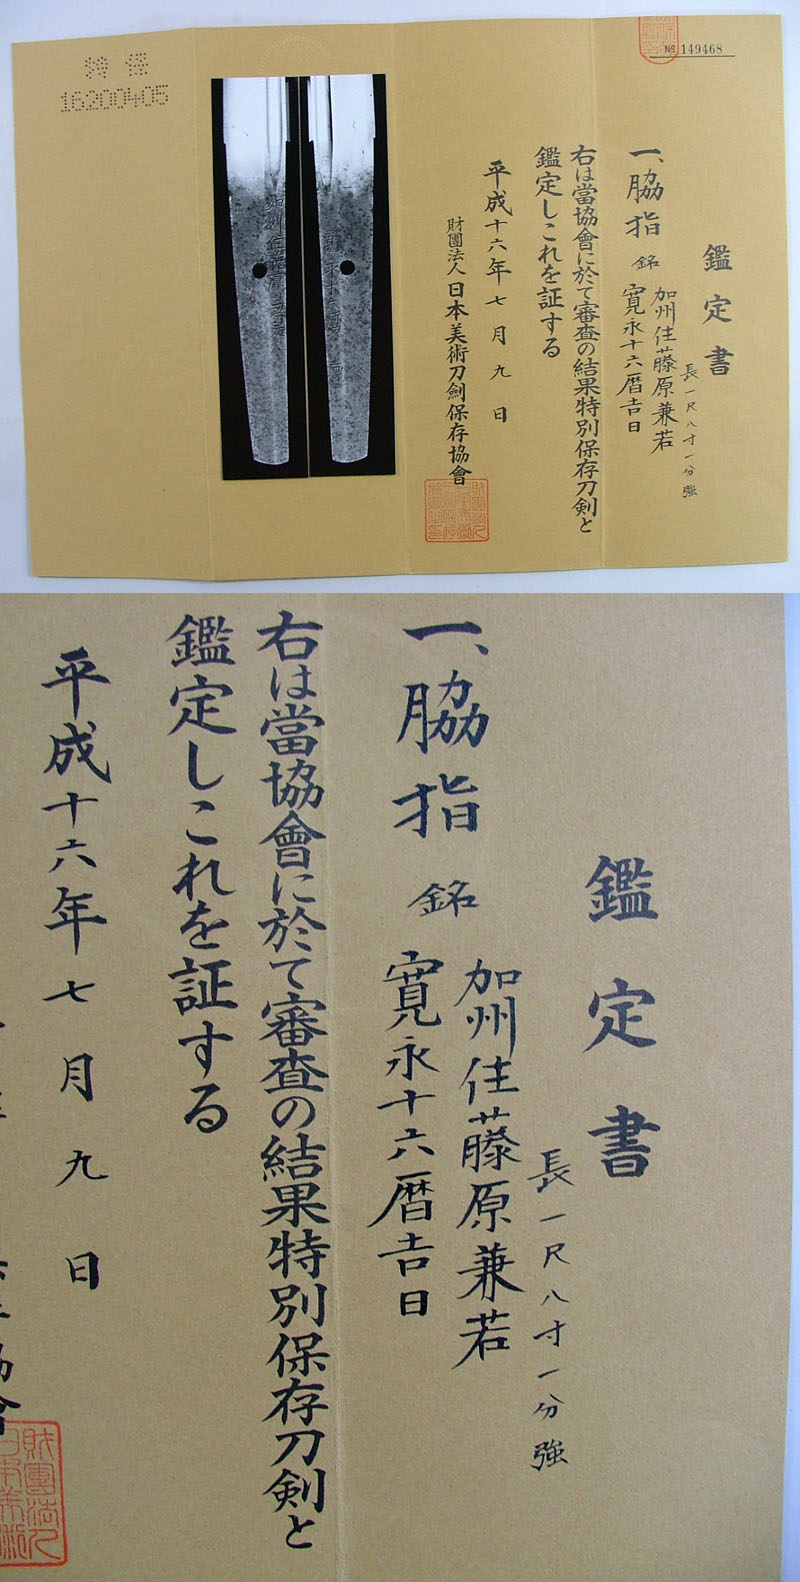 特保
16200405
№ 149468
鑑定書
長一尺八寸一分強
一、脇指 銘 加州住藤原兼若
寛永十六暦吉日
右は當協會に於て審査の結果特別保存刀剣と
鑑定しこれを証する
平成十六年七月九日
財團法人日本美術刀劍保存協會
鑑定書
長一尺八寸一分強
一、脇指 銘 加州住藤原兼若
寛永十六暦吉日
右は當協會に於て審査の結果特別保存刀剣と
鑑定しこれを証する
平成十六年七月九日